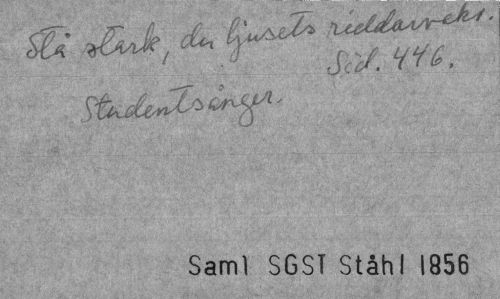 Stå stark, du ljusets riddarvakt.
Sid. 446.
Studentsånger.
Saml SGST Ståhl 1856